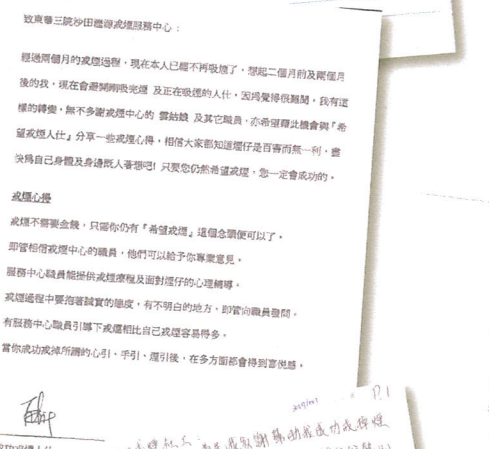 致東華三院沙田瀝源戒煙服務中心：
經過兩個月的戒煙過程，現在本人已經不再吸煙了，想起二個月前及兩個月
後的我，現在會避開剛吸完煙 及正在吸煙的人仕，因為覺得很難聞，我有這
樣的轉變，無不多謝戒煙中心的 雲姑娘 及其它職員，亦希望藉此機會與『希
望戒煙人仕』分享一些戒煙心得，相信大家都知道煙仔是百害而無一利，盡
快為自己身體及身邊既人著想吧! 只要您仍然希望戒煙，您一定會成功的。
戒煙心得
戒煙不需要金錢，只需你仍有『希望戒煙』這個念頭便可以了。
即管相信戒煙中心的職員，他們可以給予你專業意見。
服務中心職員能提供戒煙療程及面對煙仔的心理輔導。
戒煙過程中要抱著誠實的態度，有不明白的地方，即管向職員發問。
有服務中心職員引導下戒煙相比自己戒煙容易得多。
當你成功戒掉所謂的心引、手引、煙引後，在多方面都會得到喜悅感。
P.1
謝幫助我成功戒掉煙